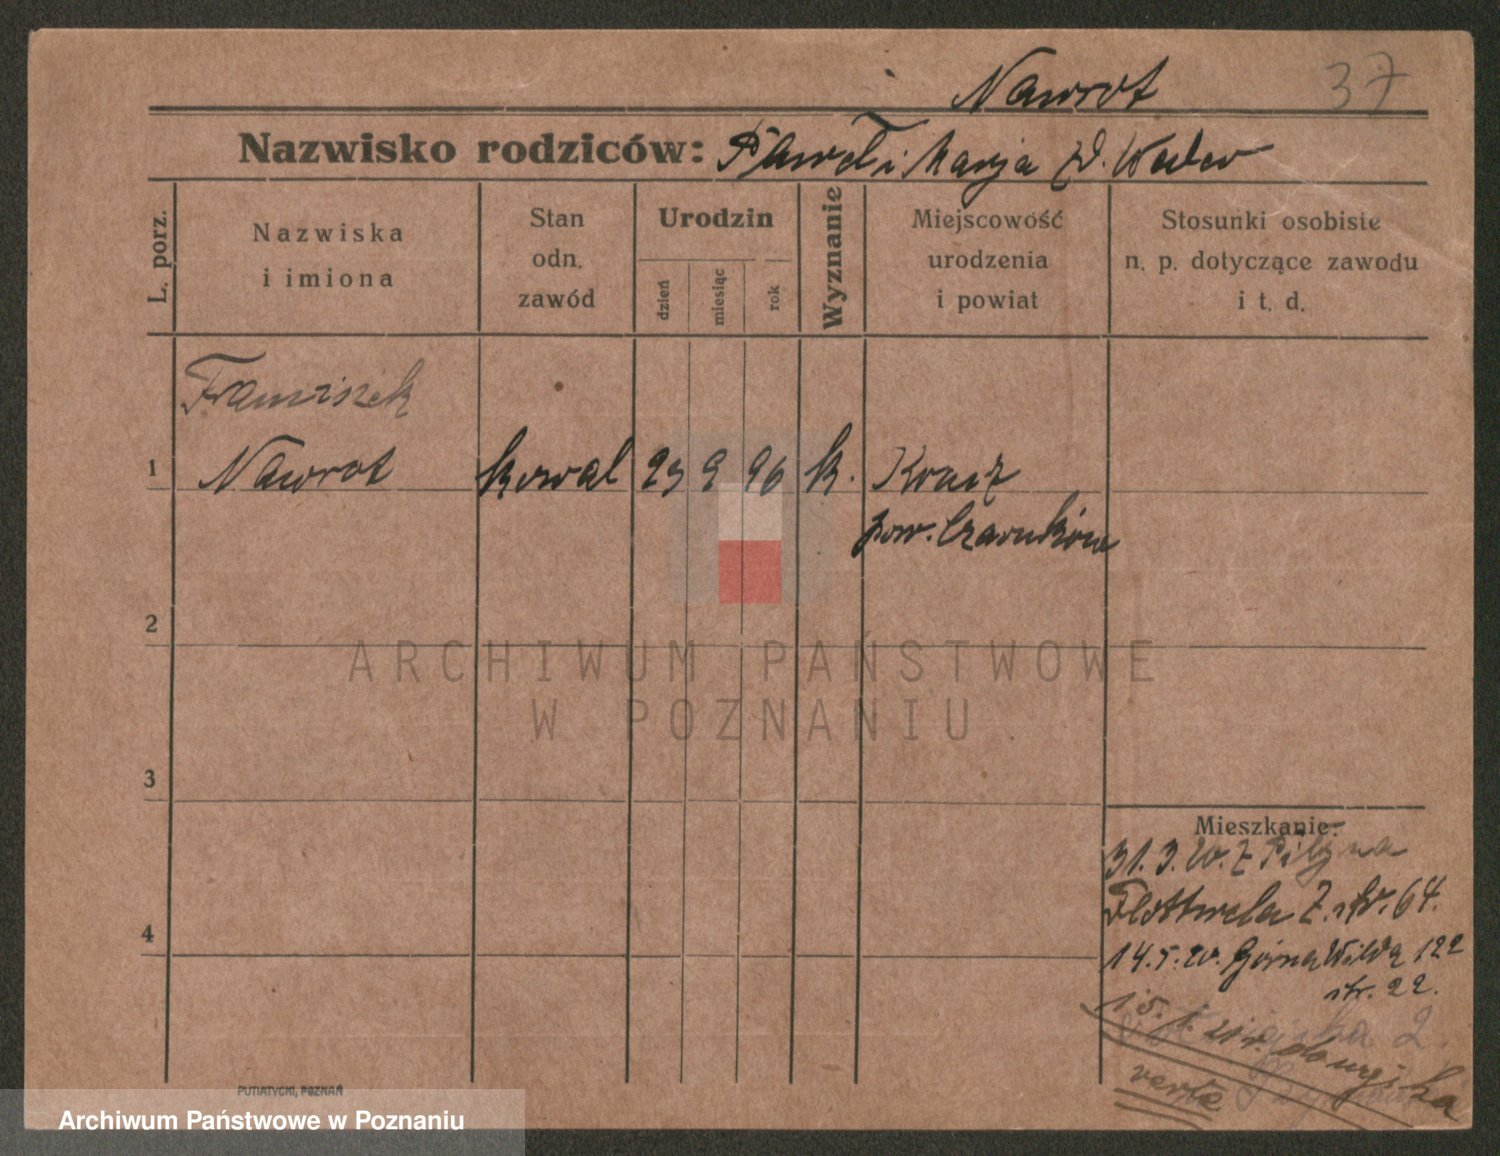 Nawrot 37
Nazwisko rodziców: Paweł i Marja
L. porz.
Nazwiska
i imiona
Stan
odn.
zawód
Urodzin
dzień
miesiąc
rok
Wyznanie
Miejscowość
urodzenia
i powiat
Stosunki osobiste
n. p. dotyczące zawodu
i t. d.
Franciszek
1 Nawrot kowal 23 9 96 k.
pow. Czarnków
2
ARCHIWUM PAŃSTWOWE
W POZNANIU
3
Mieszkanie:
31.3.20. z
Flottwela 64.
4
14.5.20. Górna Wilda 122
str. 22.
verte
PUTIATYCKI, POZNAŃ
Archiwum Państwowe w Poznaniu